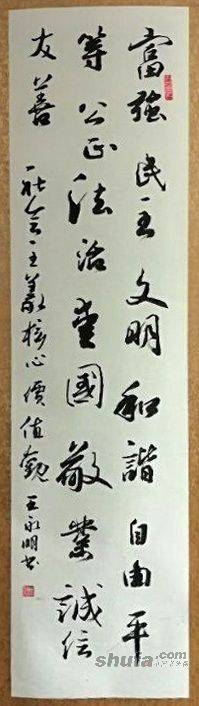 富強民主文明和諧自由平
等公正法治愛國敬業誠信
友善 社會主義核心價值觀 王永明书
shufa.com